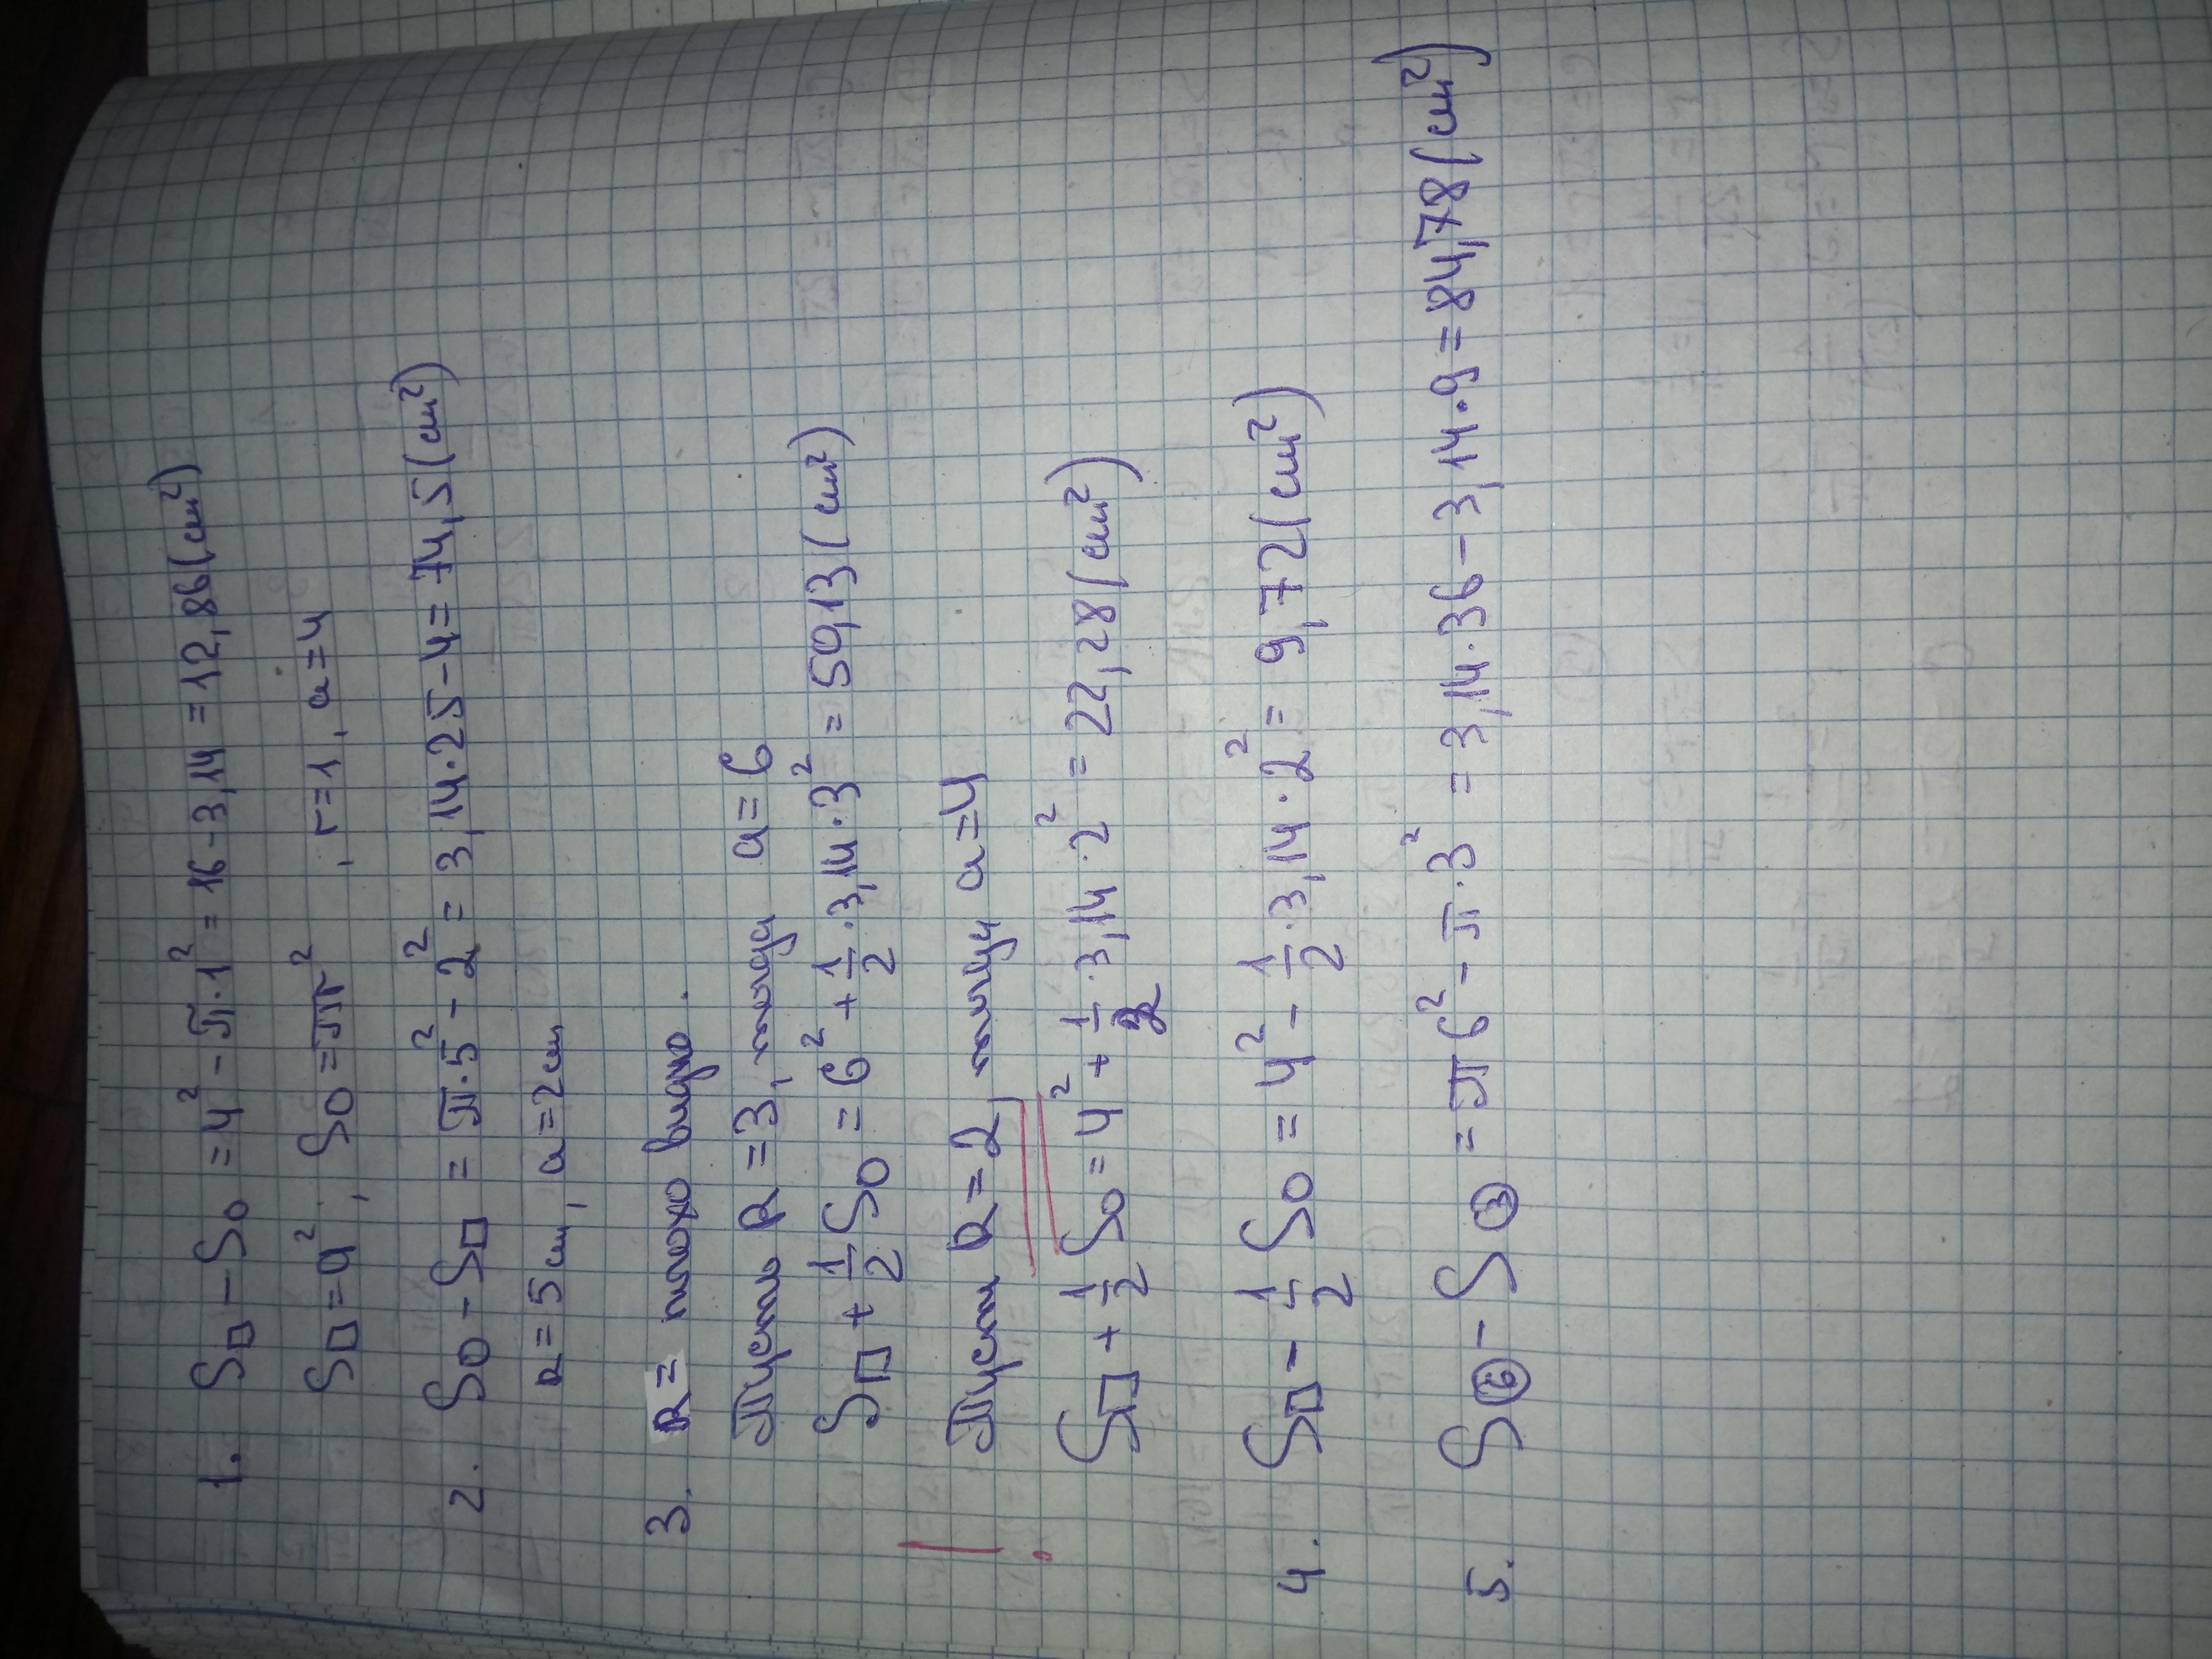 1. S□ - S○ = 4² - π·1² = 16 - 3,14 = 12,86 (см²)
S□ = a², S○ = πr², r = 1, a = 4
2. S○ - S□ = π·5² - 2² = 3,14·25 - 4 = 74,5 (см²)
R = 5 см, a = 2 см
3. R = плохо видно.
Пусть R = 3, тогда a = 6
S□ + 1/2 S○ = 6² + 1/2 · 3,14 · 3² = 50,13 (см²)
Пусть R = 2, тогда a = 4
S□ + 1/2 S○ = 4² + 1/2 · 3,14 · 2² = 22,28 (см²)
4. S□ - 1/2 S○ = 4² - 1/2 · 3,14 · 2² = 9,72 (см²)
5. S⑥ - S③ = π6² - π·3² = 3,14·36 - 3,14·9 = 84,78 (см²)